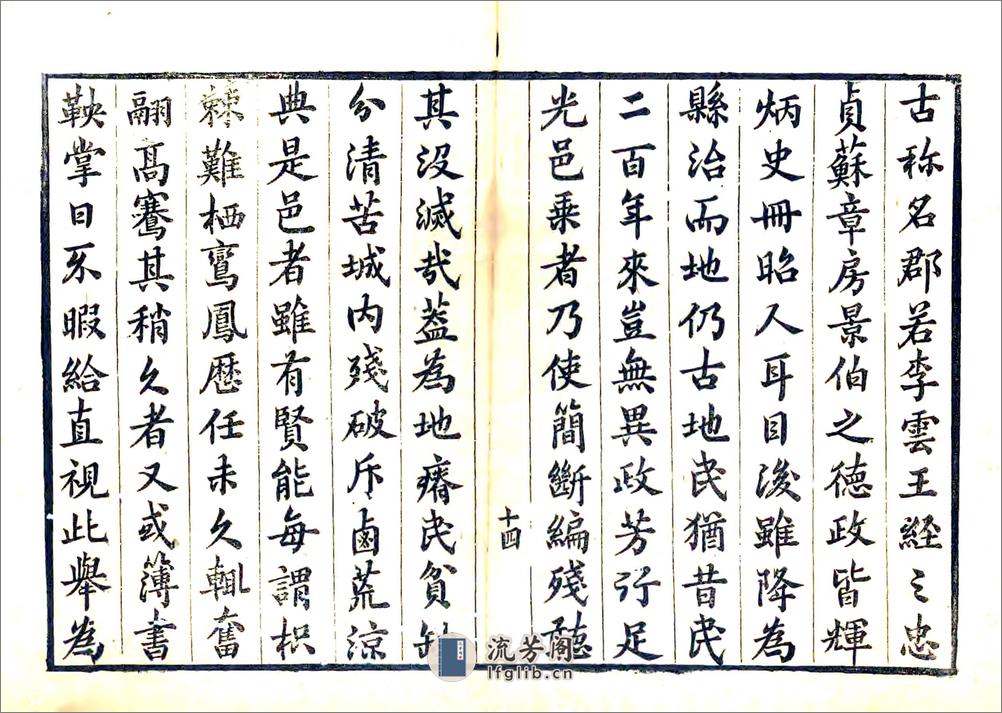 古称名郡若李雲王経之忠
貞蘇章房景伯之德政皆輝
炳史冊昭人耳目後雖降為
縣治而地仍古地民猶昔民
二百年來豈無異政芳行足
光邑乗者乃使簡斷編殘聽
十四
其没滅哉葢為地瘠民貧缺
分清苦城内殘破斥鹵荒涼
典是邑者雖有賢能每謂枳
棘難栖鸞鳳歴任未久輒奮
翮高騫其稍久者又或簿書
鞅掌日不暇給直視此舉為
流芳阁
lfglib.cn